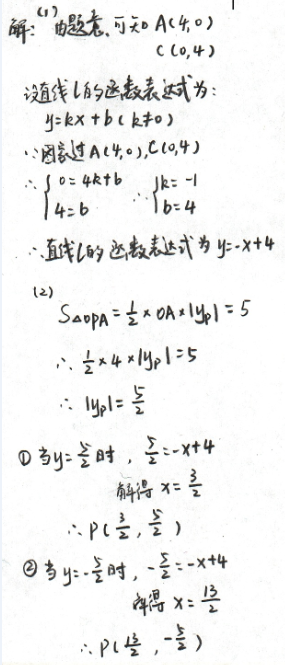 解：(1) 由题意，可知 A(4,0)
C(0,4)
设直线l的函数表达式为：
y=kx+b(k≠0)
∵图象过A(4,0),C(0,4)
∴ { 0=4k+b ∴ { k=-1
4=b b=4
∴直线l的函数表达式为y=-x+4
(2)
S△OPA = 1/2 × OA × |yp| = 5
∴ 1/2 × 4 × |yp| = 5
∴ |yp| = 5/2
① 当y=5/2时， 5/2=-x+4
解得 x=3/2
∴P(3/2, 5/2)
② 当y=-5/2时， -5/2=-x+4
解得 x=13/2
∴P(13/2, -5/2)